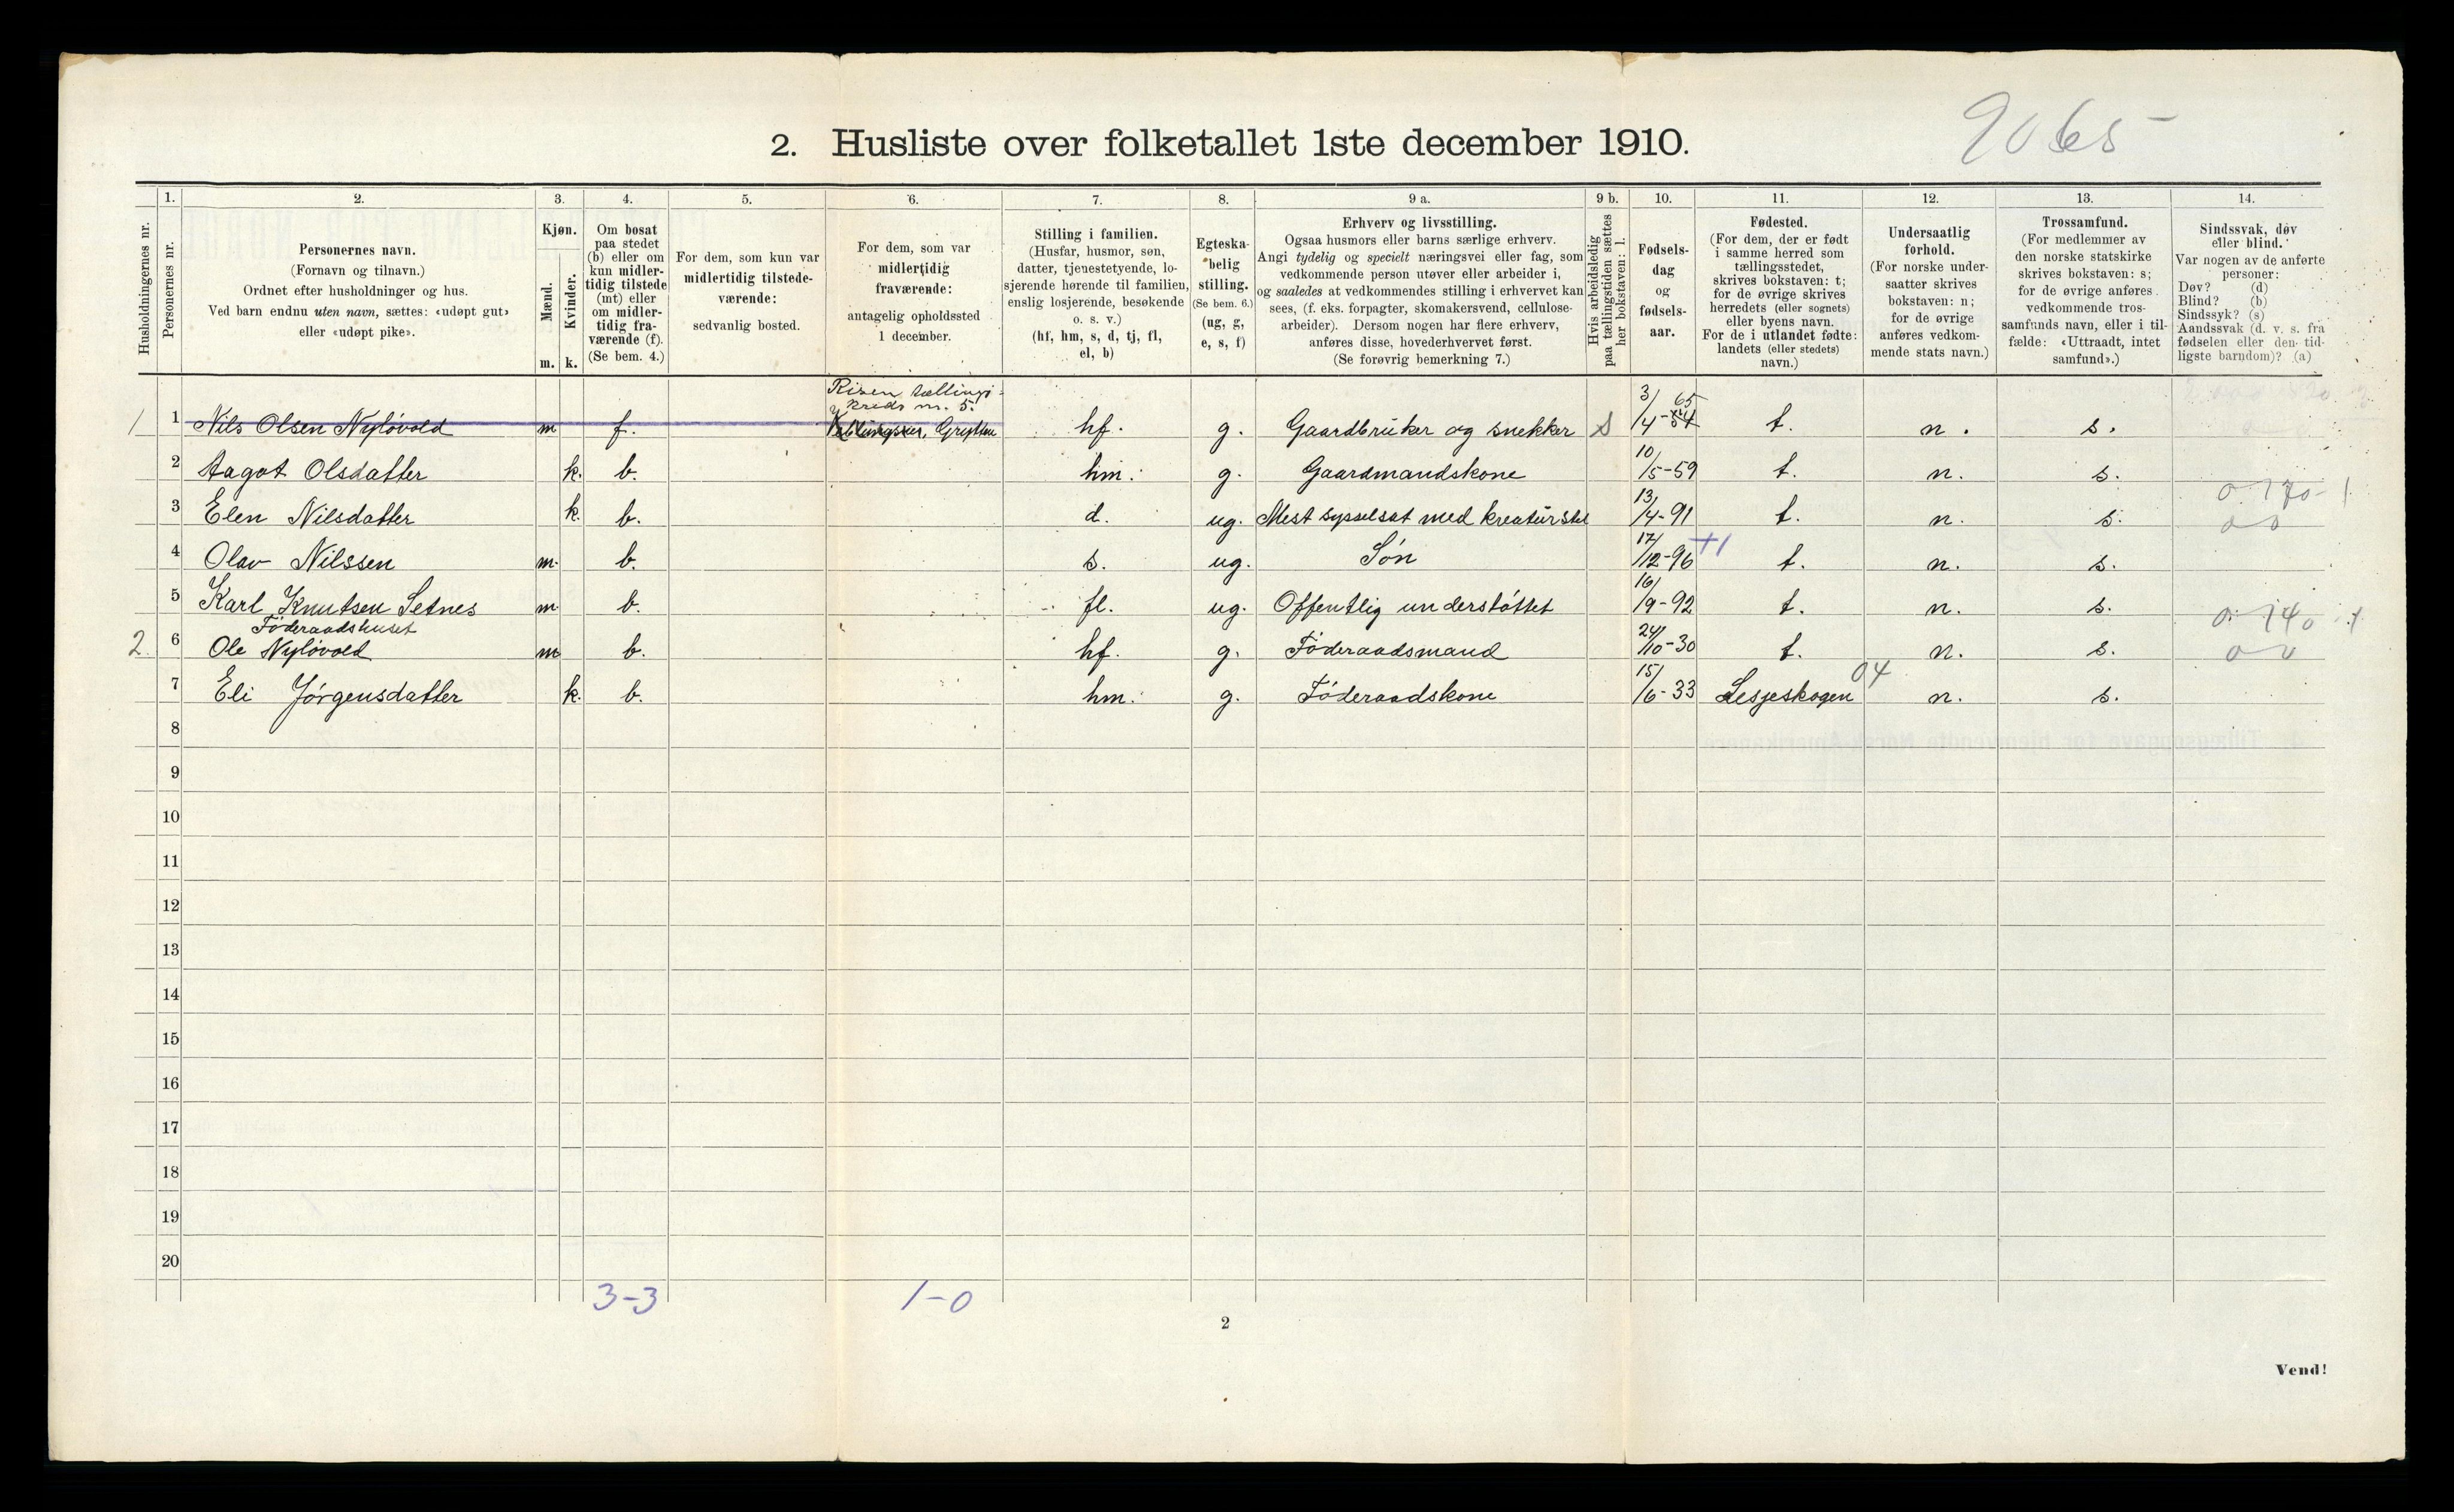 9065
2. Husliste over folketallet 1ste december 1910.
Husholdningernes nr.
1.
Personernes nr.
2.
Personernes navn.
(Fornavn og tilnavn.)
Ordnet efter husholdninger og hus.
Ved barn endnu uten navn, sættes: «udøpt gut»
eller «udøpt pike».
3.
Kjøn.
Mænd.
Kvinder.
m. k.
4.
Om bosat
paa stedet
(b) eller om
kun midler-
tidig tilstede
(mt) eller
om midler-
tidig fra-
værende (f).
(Se bem. 4.)
5.
For dem, som kun var
midlertidig tilstede-
værende:
sedvanlig bosted.
6.
For dem, som var
midlertidig
fraværende:
antagelig opholdssted
1 december.
7.
Stilling i familien.
(Husfar, husmor, søn,
datter, tjenestetyende, lo-
sjerende hørende til familien,
enslig losjerende, besøkende
o. s. v.)
(hf, hm, s, d, tj, fl,
el, b)
8.
Egteska-
belig
stilling.
(Se bem. 6.)
(ug, g,
e, s, f)
9 a.
Erhverv og livsstilling.
Ogsaa husmors eller barns særlige erhverv.
Angi tydelig og specielt næringsvei eller fag, som
vedkommende person utøver eller arbeider i,
og saaledes at vedkommendes stilling i erhvervet kan
sees, (f. eks. forpagter, skomakersvend, cellulose-
arbeider). Dersom nogen har flere erhverv,
anføres disse, hovederhvervet først.
(Se forøvrig bemerkning 7.)
9 b.
Hvis arbeidsledig
paa tællingstiden sættes
her bokstaven: l.
10.
Fødsels-
dag
og
fødsels-
aar.
11.
Fødested.
(For dem, der er født
i samme herred som
tællingsstedet,
skrives bokstaven: t;
for de øvrige skrives
herredets (eller sognets)
eller byens navn.
For de i utlandet fødte:
landets (eller stedets)
navn.)
12.
Undersaatlig
forhold.
(For norske under-
saatter skrives
bokstaven: n;
for de øvrige
anføres vedkom-
mende stats navn.)
13.
Trossamfund.
(For medlemmer av
den norske statskirke
skrives bokstaven: s;
for de øvrige anføres
vedkommende tros-
samfunds navn, eller i til-
fælde: «Uttraadt, intet
samfund».)
14.
Sindssvak, døv
eller blind.
Var nogen av de anførte
personer:
Døv? (d)
Blind? (b)
Sindssyk? (s)
Aandssvak (d. v. s. fra
fødselen eller den tid-
ligste barndom)? (a)
Risen tællings-
kreds nr. 5.
1 1 Nils Olsen Nyløvold m f. Grytten hf. g. Gaardbruker og snekker S 3/4-54 65 t. n. s.
2 Aagot Olsdatter k. b. hm. g. Gaardmandskone 10/5-59 t. n. s.
3 Elen Nilsdatter k. b. d. ug. Mest sysselsat med kreaturstel 13/4-91 t. n. s.
4 Olav Nilssen m. b. s. ug. Søn 17/12-96 +1 t. n. s.
5 Karl Knutsen Setnes m. b. fl. ug. Offentlig understøttet 16/9-92 t. n. s.
Føderaadshuset
2. 6 Ole Nyløvold m b. hf. g. Føderaadsmand 24/10-30 t. n. s.
7 Eli Jørgensdatter k. b. hm. g. Føderaadskone 15/6-33 Lesjeskogen 04 n. s.
8
9
10
11
12
13
14
15
16
17
18
19
20
3-3 1-0
2
Vend!